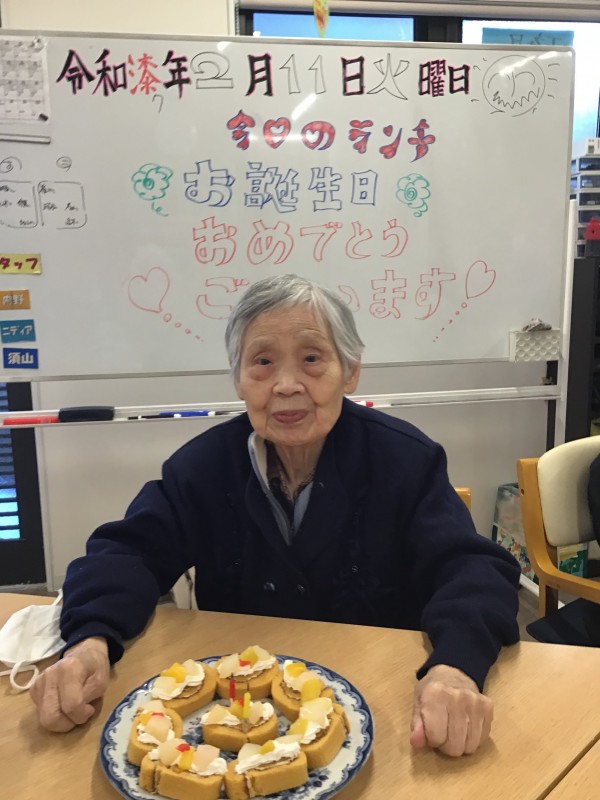 令和漆年2月11日火曜日
7
今日のランチ
お誕生日
おめでとう
ご います
タッフ
内野
ニディア
須山